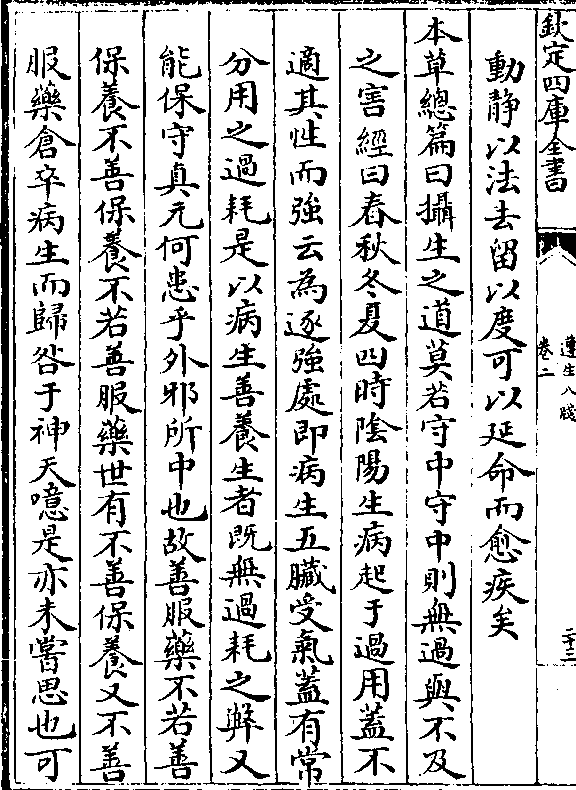 欽定四庫全書
遵生八牋
卷二
二十三
動靜以法去留以度可以延命而愈疾矣
本草總篇曰攝生之道莫若守中守中則無過與不及
之害經曰春秋冬夏四時陰陽生病起于過用蓋不
適其性而強云為逐強處即病生五臟受氣蓋有常
分用之過耗是以病生善養生者既無過耗之弊又
能保守真元何患乎外邪所中也故善服藥不若善
保養不善保養不若善服藥世有不善保養又不善
服藥倉卒病生而歸咎于神天噫是亦未嘗思也可